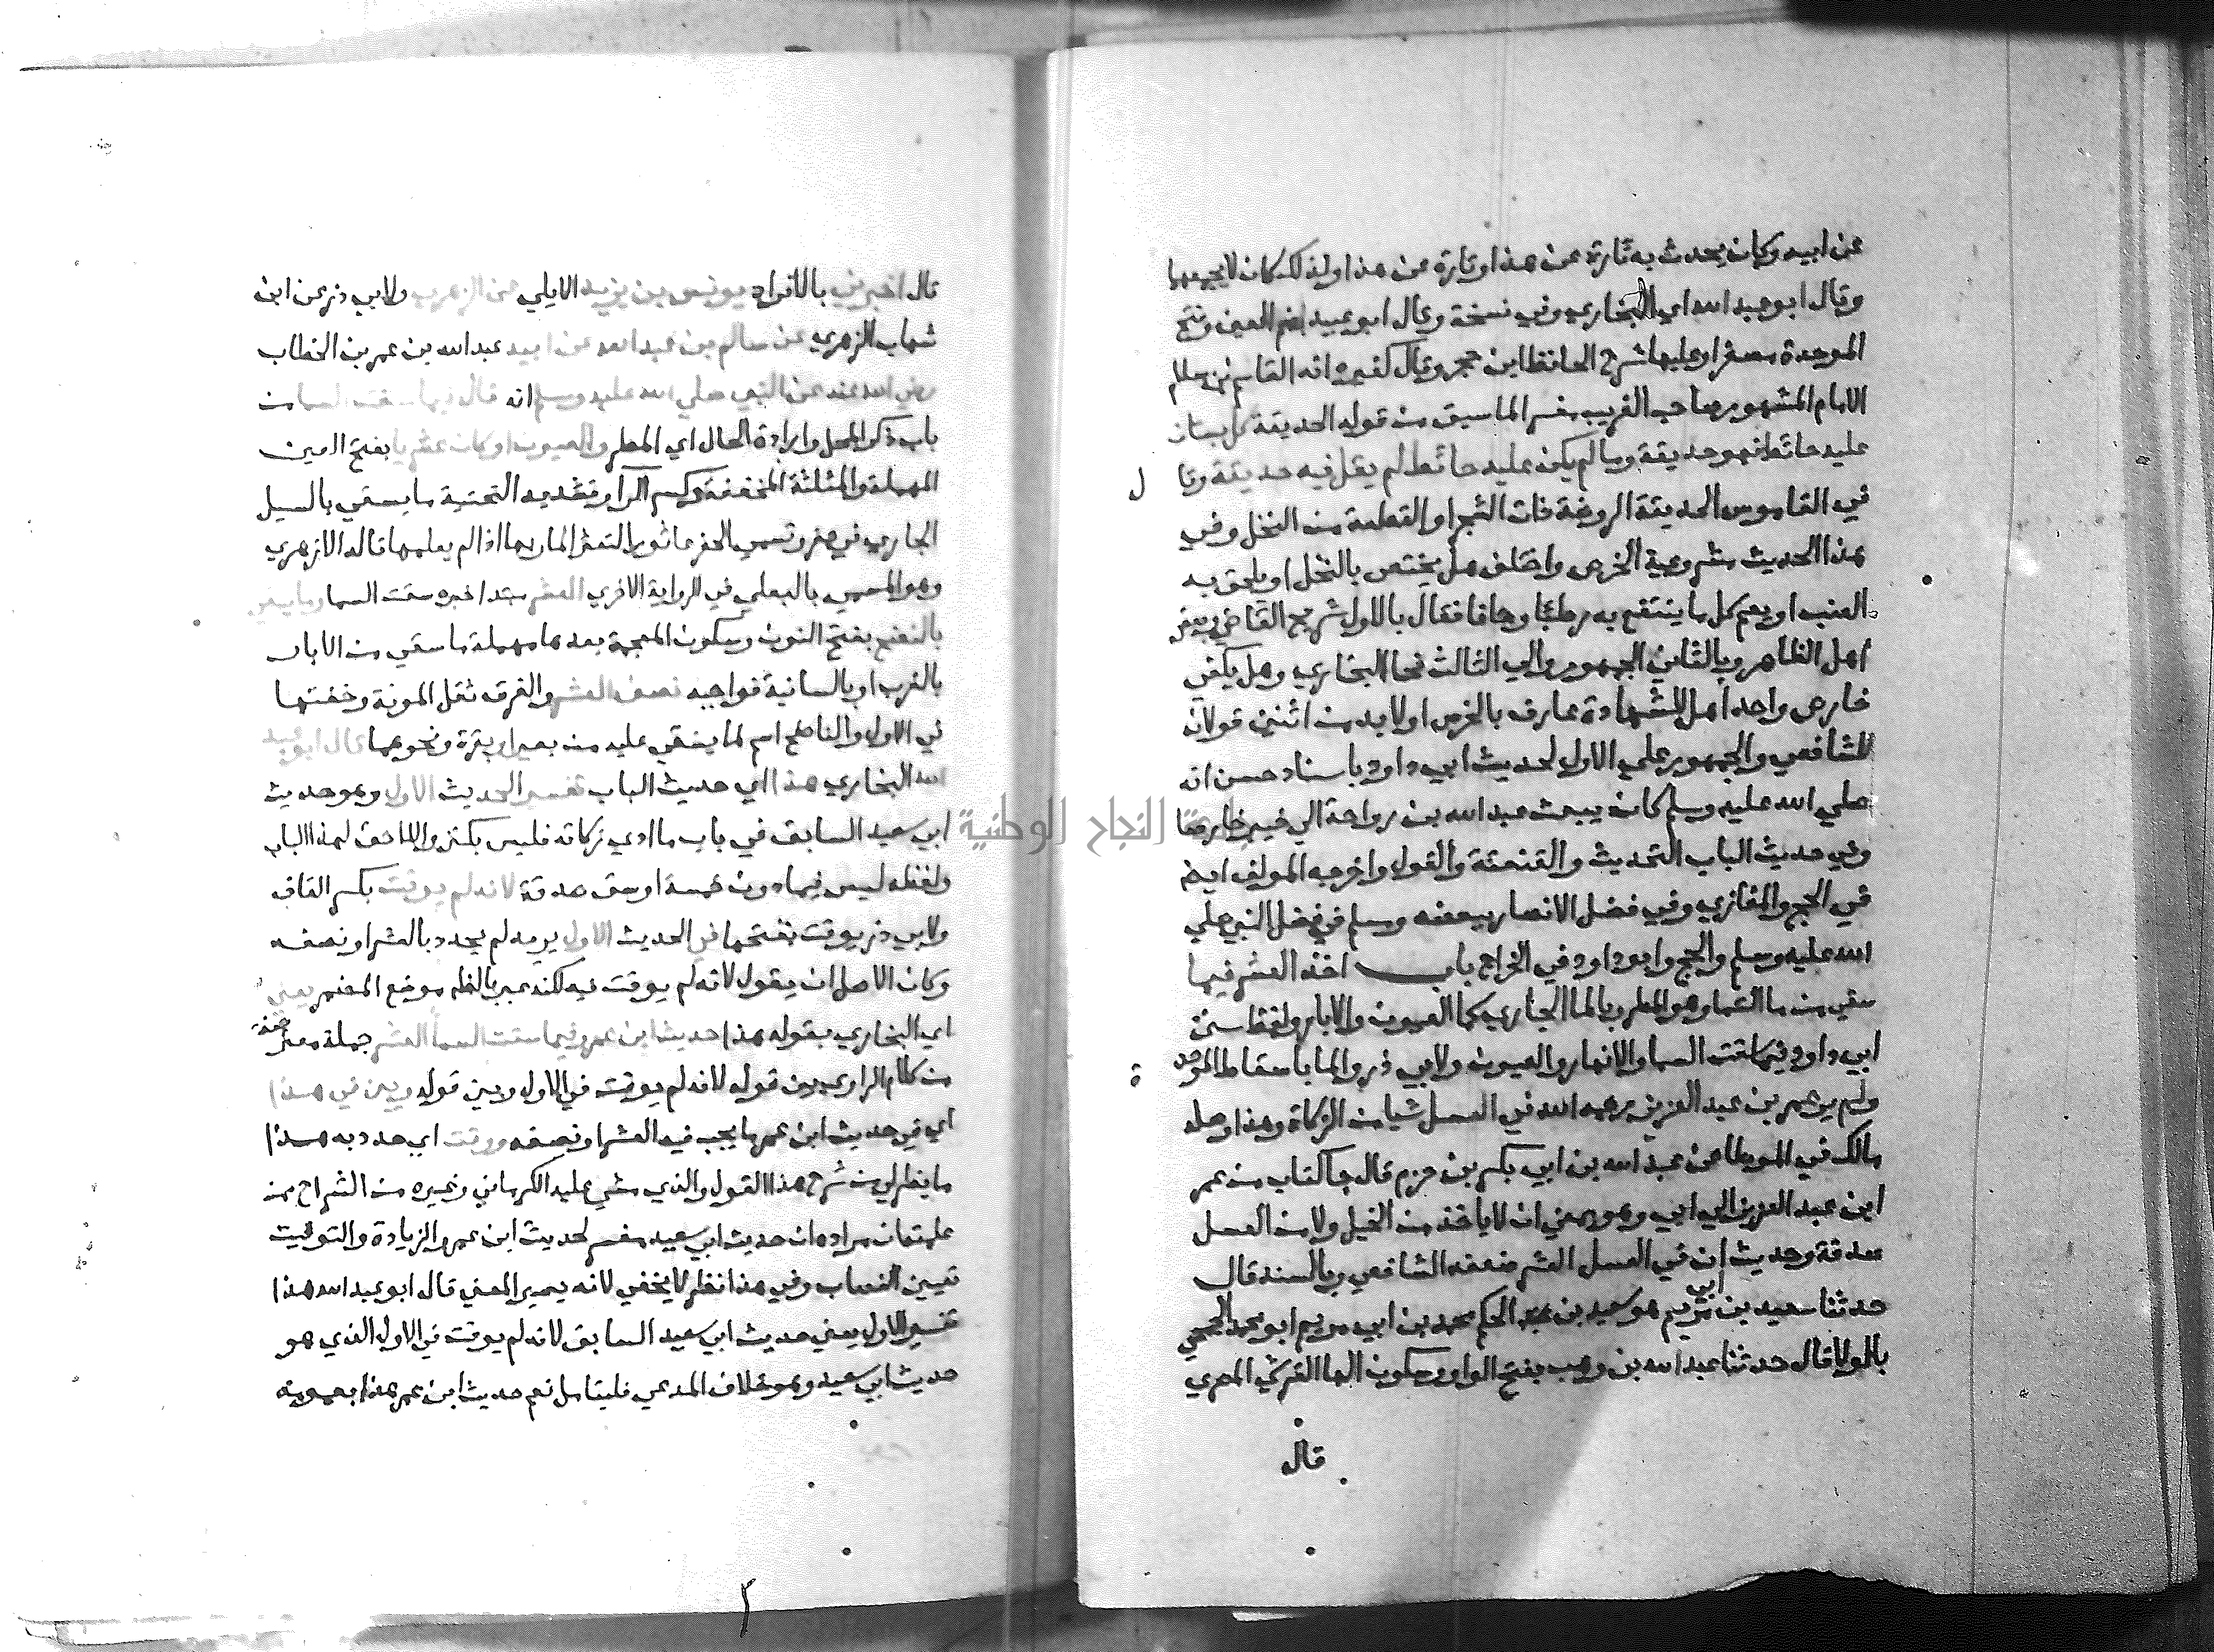 عن ابيه وكان يحدث به تارة عن هذا وتارة عن هذا ولذلك كان لا يجمعهما
وقال ابو عبد الله اي البخاري وفي نسخة وقال ابو عبيد بضم العين وفتح
الموحدة مصغرا وعليها شرح الحافظ ابن حجر وقال كغيره انه القاسم بن سلام
الامام المشهور صاحب الغريب مفسرا لما سبق من قوله الحديقة كل بستان
عليه حائط فهو حديقة وما لم يكن عليه حائط لم يقل فيه حديقة وقا
ل
في القاموس الحديقة الروضة ذات الشجر او القطعة من النخل وفي
هذا الحديث مشروعية الخرص واختلف هل يختص بالنخل او يلحق به
العنب او يعم كل ما ينتفع به رطبا وجافا فقال بالاول شريح القاضي وبعض
اهل الظاهر وبالثاني الجمهور والي الثالث نحا البخاري وهل يكفي
خارص واحد اهل للشهادة عارف بالخرص او لابد من اثنين قولان
للشافعي والجمهور علي الاول لحديث ابي داود باسناد حسن انه
صلي الله عليه وسلم كان يبعث عبد الله بن رواحة الي خيبر خارصا
وفي حديث الباب التحديث والعنعنة والقول واخرجه المولف ايضا
في الحج والمغازي وفي فضل الانصار ببعضه ومسلم في فضل النبي صلي
الله عليه وسلم والحج وابو داود في الخراج باب اخذ العشر فيما
سقي من ما السما وهو المطر وبالما الجاري كما العيون والابار ولفظ سنن
ابي داود فيما سقت السما والانهار والعيون ولابي ذر والما باسقاط الموحد
ة
ولم ير عمر بن عبد العزيز رحمه الله في العسل شيا من الزكاة وهذا وصله
مالك في الموطا عن عبد الله بن ابي بكر بن حزم قال جا كتاب من عمر
ابن عبد العزيز الي ابي وهو بمني ان لا ياخذ من الخيل ولا من العسل
صدقة وحديث ان في العسل العشر ضعفه الشافعي وبالسند قال
حدثنا سعيد بن ابي مريم هو سعيد بن عبد الحكم محمد بن ابي مريم ابو محمد الجمحي
بالولا قال حدثنا عبد الله بن وهب بفتح الواو وسكون الها القرشي المصري
قال
قال اخبرني بالافراد يونس بن يزيد الايلي عن الزهري ولابي ذر عن ابن
شهاب الزهري عن سالم بن عبد الله عن ابيه عبد الله بن عمر بن الخطاب
رضي الله عنه عن النبي صلي الله عليه وسلم انه قال فيما سقت السما من
باب ذكر المحل وارادة الحال اي المطر والعيون او كان عثريا بفتح العين
المهملة والمثلثة المخففة وكسر الرا وتشديد التحتية ما يسقي بالسيل
الجاري في حفر وتسمي الحفر عاثورا لتعثر المار بها اذا لم يعلمها قاله الازهري
وهو المسمي بالبعلي في الرواية الاخري العشر مبتدا خبره سقت السما وما سقي
بالنضح بفتح النون وسكون المعجمة بعدها مهملة ما سقي من الابار
بالغرب او بالسانية فواجبه نصف العشر والفرق ثقل المونة وخفتها
في الاول والناضح اسم لما يسقي عليه من بعير او بقرة ونحوهما قال ابو عبد
الله البخاري هذا اي حديث الباب تفسير الحديث الاول وهو حديث
ابي سعيد السابق في باب ما ادي زكاته فليس بكنز واللاحق لهذا الباب
ولفظه ليس فيما دون خمسة اوسق صدقة لانه لم يوقت بكسر القاف
ولابي ذر يوقت بفتحها في الحديث الاول يريد لم يحدد بالعشر او نصفه
وكان الاصل ان يقول لانه لم يوقت فيه لكنه عبر بالظاهر موضع المضمر يعني
اي البخاري بقوله هذا حديث ابن عمر فيما سقت السما العشر جملة معترضة
من كلام الراوي بين قوله لانه لم يوقت في الاول وبين قوله وبين في هذا
اي في حديث ابن عمر ما يجب فيه العشر او نصفه ووقت اي حدد به هذا
ما يظهر لي من شرح هذا القول والذي مشي عليه الكرماني وغيره من الشراح ممن
علمته ان مراده ان حديث ابي سعيد مفسر لحديث ابن عمر والزيادة والتوقيت
تعيين النصاب وفي هذا نظر لا يخفي لانه يصير المعني قال ابو عبد الله هذا
تفسير الاول يعني حديث ابي سعيد السابق لانه لم يوقت في الاول الذي هو
حديث ابي سعيد وهو خلاف المدعي فليتامل نعم حديث ابن عمر هذا بعمومه
جامعة النجاح الوطنية